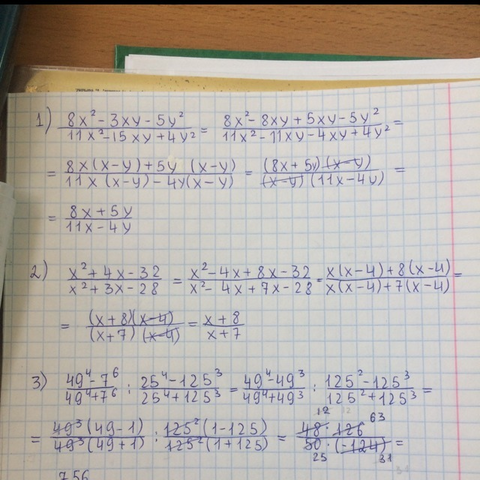 1) (8x² - 3xy - 5y²)/(11x² - 15xy + 4y²) = (8x² - 8xy + 5xy - 5y²)/(11x² - 11xy - 4xy + 4y²) =
= (8x(x-y) + 5y (x-y))/(11x(x-y) - 4y(x-y)) = ((8x+5y)(x-y))/((x-y)(11x-4y)) =
= (8x+5y)/(11x-4y)
2) (x² + 4x - 32)/(x² + 3x - 28) = (x² - 4x + 8x - 32)/(x² - 4x + 7x - 28) = (x(x-4) + 8(x-4))/(x(x-4) + 7(x-4)) =
= ((x+8)(x-4))/((x+7)(x-4)) = (x+8)/(x+7)
3) (49⁴ - 7⁶)/(49⁴ + 7⁶) : (25⁴ - 125³)/(25⁴ + 125³) = (49⁴ - 49³)/(49⁴ + 49³) : (125² - 125³)/(125² + 125³) =
= (49³(49-1))/(49³(49+1)) : (125²(1-125))/(125²(1+125)) = (48 12 · 126 63)/(50 25 · (-124) 31) =
756